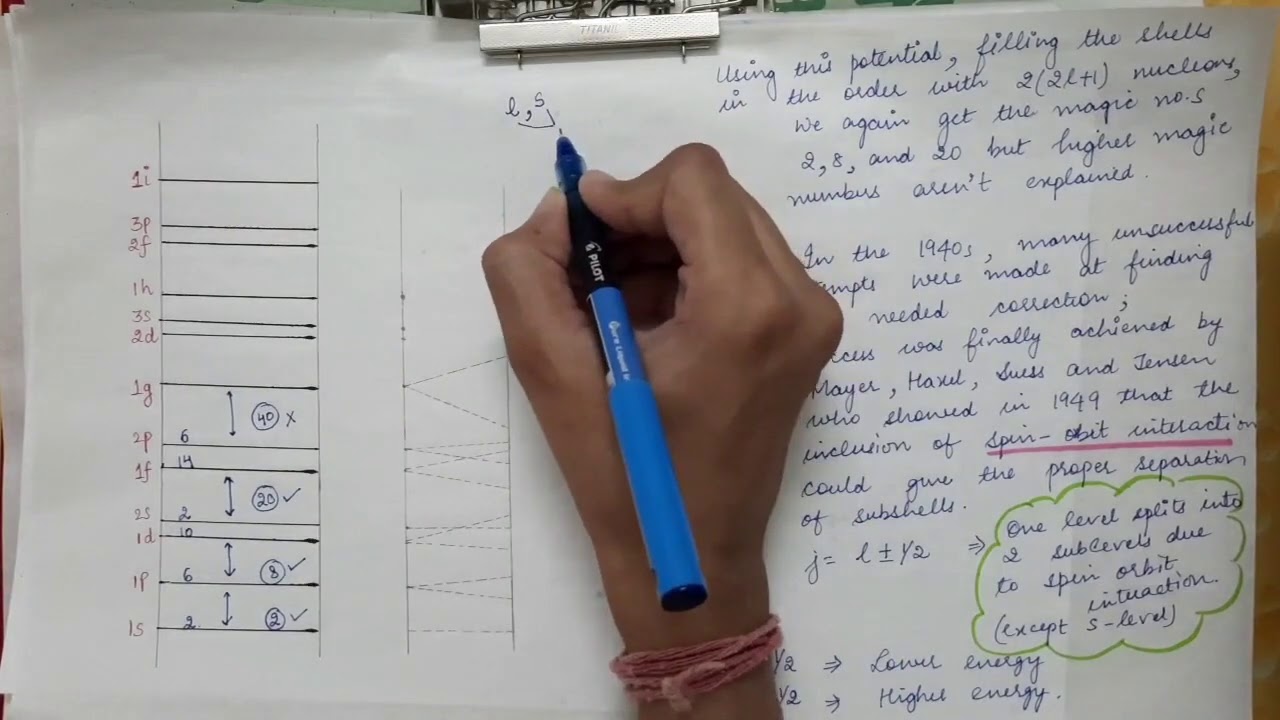 TITANIC
l, s
1i
3p
2f
1h
3s
2d
1g
40 x
2p 6
1f 14
20 ✓
2s 2
1d 10
8 ✓
1p 6
2 ✓
1s 2
PILOT
Using this potential, filling the shells
in the order with 2(2l+1) nucleons,
we again get the magic no.s
2, 8, and 20 but higher magic
numbers aren't explained.
In the 1940s, many unsuccessful
empts were made at finding
needed correction;
cess was finally achieved by
Mayer, Haxel, Suess and Jensen
who showed in 1949 that the
inclusion of spin-orbit interaction
could give the proper separation
of subshells.
j = l ± 1/2 ⇒
One level splits into
2 sublevels due
to spin orbit
interaction.
(except S-level)
1/2 ⇒ Lower energy
1/2 ⇒ Higher energy.